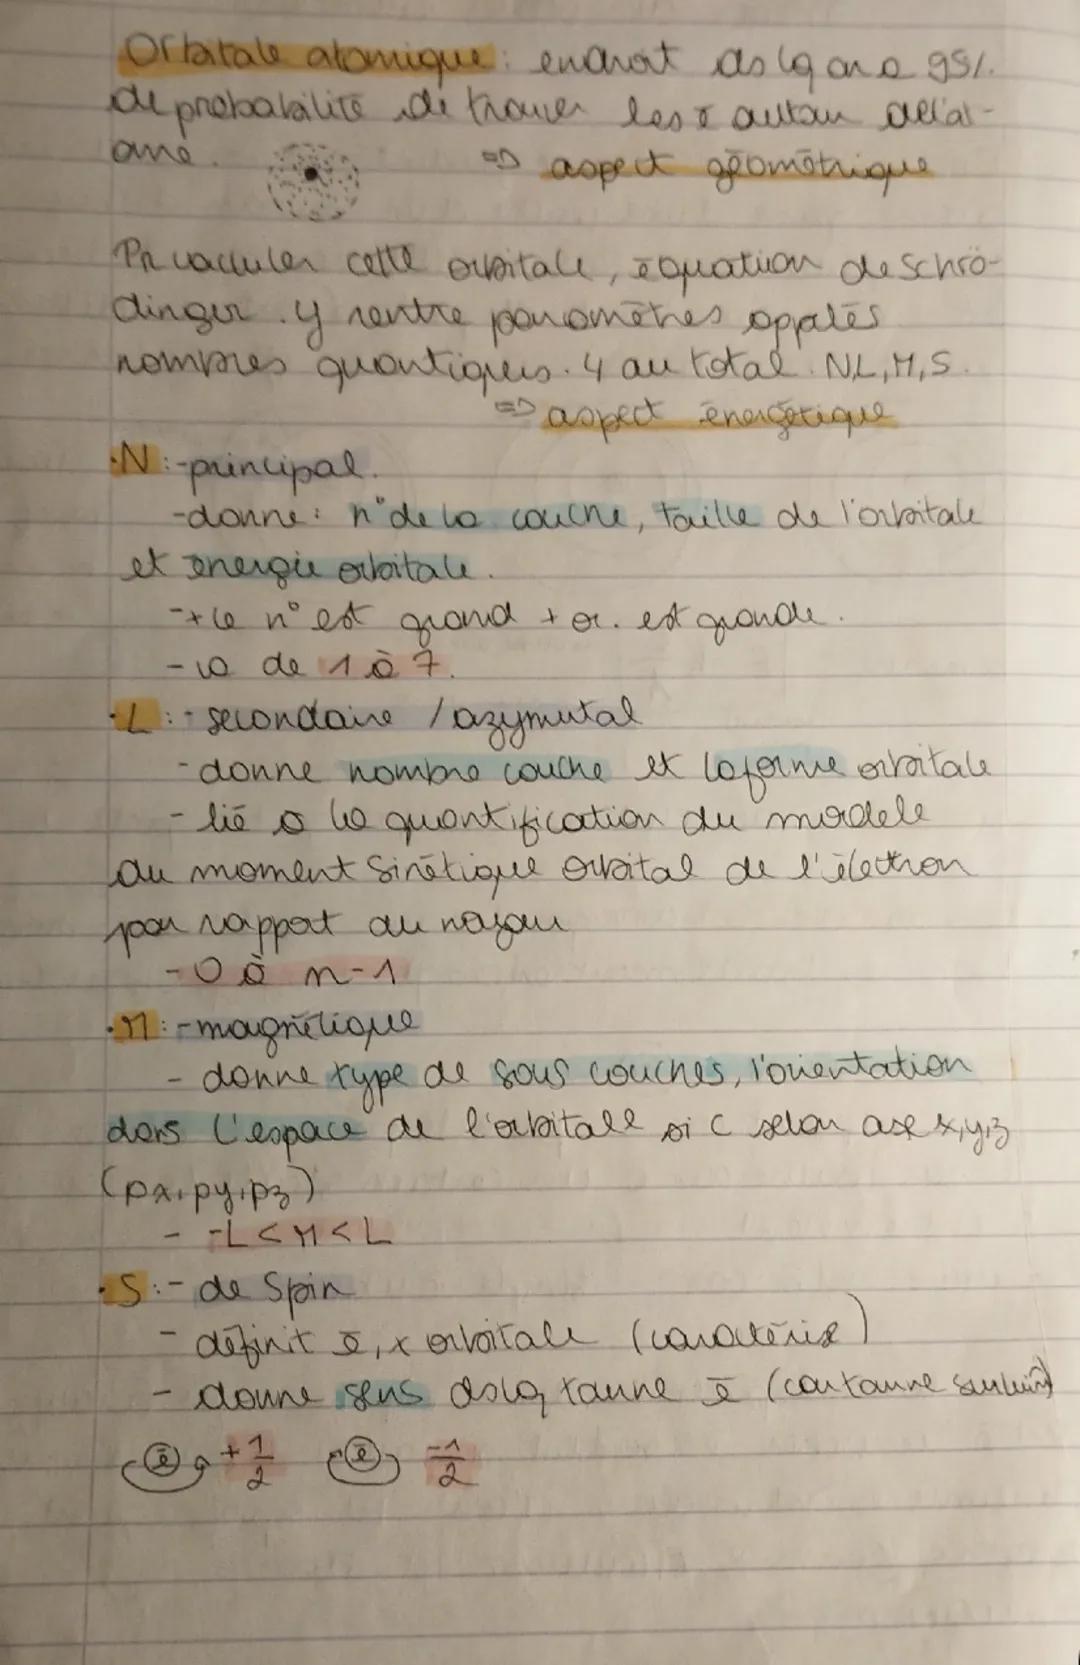 Orbitale atomique : endroit ds lq on a 95%
de probabilité de trouver les ē autour de l'at-
ome.
⇒ aspect géométrique
Pr calculer cette orbitale, équation de Schrö-
dinger. y rentre paramètres appelés
nombres quantiques. 4 au total. N,L,M,S.
⇒ aspect énergétique
·N : -principal.
-donne : n° de la couche, taille de l'orbitale
et énergie orbitale.
-+ le n° est grand + or. est grande.
- va de 1 à 7.
·L : - secondaire / azymutal
- donne nombre couche et la forme orbitale
- lié à la quantification du modele
du moment Sinétique orbital de l'électron
par rapport au noyau
- 0 à n-1
·M : -magnétique
- donne type de sous couches, l'orientation
dans l'espace de l'orbitale si c selon axe x,y,z
(px,py,pz)
- -L < M < L
·S : - de Spin
- définit ē, x orbitale (caractérise)
- donne sens ds lq tourne ē (car tourne sur lui m)
ē +1/2 ē -1/2